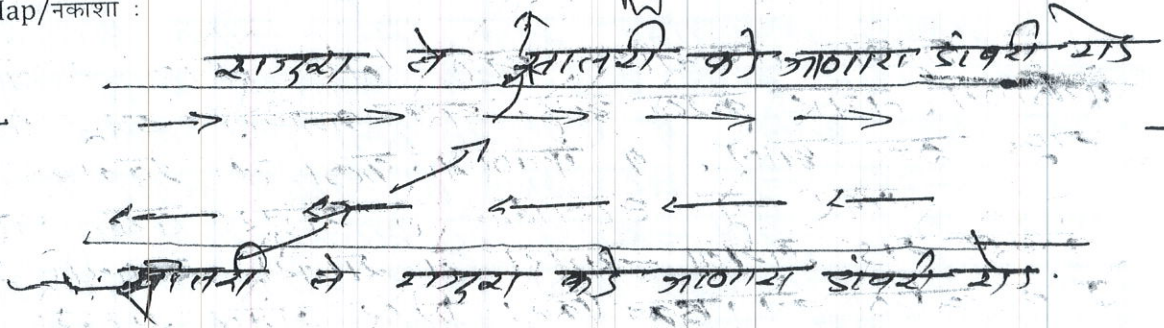 Map/नकाशा :
राजुरा ते सातरी कडे जाणारा डांबरी रोड
सातरी ते राजुरा कडे जाणारा डांबरी रोड.